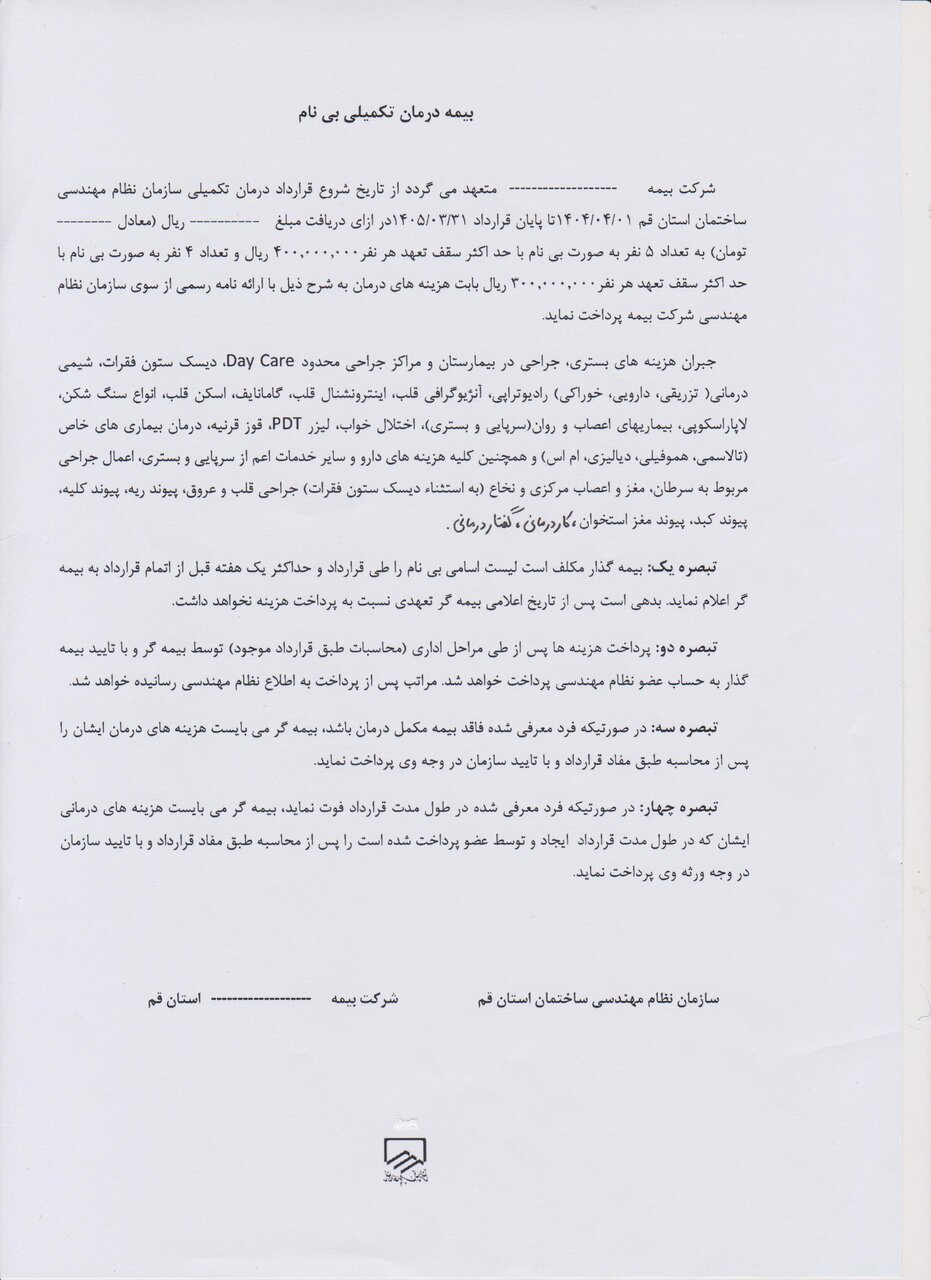 بیمه درمان تکمیلی بی نام
شرکت بیمه ------------------- متعهد می گردد از تاریخ شروع قرارداد درمان تکمیلی سازمان نظام مهندسی
ساختمان استان قم ۱۴۰۴/۰۴/۰۱تا پایان قرارداد ۱۴۰۵/۰۳/۳۱در ازای دریافت مبلغ ---------- ریال (معادل --------
تومان) به تعداد ۵ نفر به صورت بی نام با حد اکثر سقف تعهد هر نفر۴۰۰,۰۰۰,۰۰۰ ریال و تعداد ۴ نفر به صورت بی نام با
حد اکثر سقف تعهد هر نفر۳۰۰,۰۰۰,۰۰۰ ریال بابت هزینه های درمان به شرح ذیل با ارائه نامه رسمی از سوی سازمان نظام
مهندسی شرکت بیمه پرداخت نماید.
جبران هزینه های بستری، جراحی در بیمارستان و مراکز جراحی محدود Day Care، دیسک ستون فقرات، شیمی
درمانی( تزریقی، دارویی، خوراکی) رادیوتراپی، آنژیوگرافی قلب، اینترونشنال قلب، گامانایف، اسکن قلب، انواع سنگ شکن،
لاپاراسکوپی، بیماریهای اعصاب و روان(سرپایی و بستری)، اختلال خواب، لیزر PDT، قوز قرنیه، درمان بیماری های خاص
(تالاسمی، هموفیلی، دیالیزی، ام اس) و همچنین کلیه هزینه های دارو و سایر خدمات اعم از سرپایی و بستری، اعمال جراحی
مربوط به سرطان، مغز و اعصاب مرکزی و نخاع (به استثناء دیسک ستون فقرات) جراحی قلب و عروق، پیوند ریه، پیوند کلیه،
پیوند کبد، پیوند مغز استخوان ، کاردرمانی ، گفتار درمانی .
تبصره یک: بیمه گذار مکلف است لیست اسامی بی نام را طی قرارداد و حداکثر یک هفته قبل از اتمام قرارداد به بیمه
گر اعلام نماید. بدهی است پس از تاریخ اعلامی بیمه گر تعهدی نسبت به پرداخت هزینه نخواهد داشت.
تبصره دو: پرداخت هزینه ها پس از طی مراحل اداری (محاسبات طبق قرارداد موجود) توسط بیمه گر و با تایید بیمه
گذار به حساب عضو نظام مهندسی پرداخت خواهد شد. مراتب پس از پرداخت به اطلاع نظام مهندسی رسانیده خواهد شد.
تبصره سه: در صورتیکه فرد معرفی شده فاقد بیمه مکمل درمان باشد، بیمه گر می بایست هزینه های درمان ایشان را
پس از محاسبه طبق مفاد قرارداد و با تایید سازمان در وجه وی پرداخت نماید.
تبصره چهار: در صورتیکه فرد معرفی شده در طول مدت قرارداد فوت نماید، بیمه گر می بایست هزینه های درمانی
ایشان که در طول مدت قرارداد ایجاد و توسط عضو پرداخت شده است را پس از محاسبه طبق مفاد قرارداد و با تایید سازمان
در وجه ورثه وی پرداخت نماید.
سازمان نظام مهندسی ساختمان استان قم شرکت بیمه ------------------- استان قم